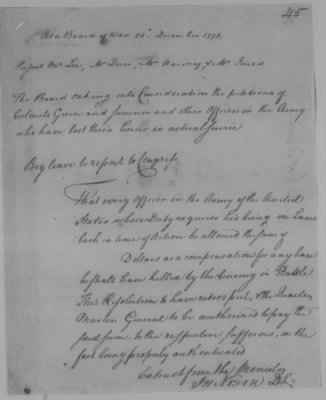 45
At a Board of War 22d December 1777
Present Mr Lee, Mr Duer, Mr Harvey, & Mr Jones
The Board taking into Consideration the petitions of
Colonels Green and and other Officers in the Army
who have lost their horses in actual Service
Beg leave to report to Congress
That every Officer in the Army of the United
States whose Duty requires his being on horse
back in time of Action be allowed the sum of
Dollars as a compensation for any horse
he shall have killed by the Enemy in Battle
This Resolution to have retrospect, & the Quarter
Master General to be authorized to pay the
said sum to the respective sufferers, on the
fact being properly authenticated
Extract from the Minutes
Jos Nourse D.S.